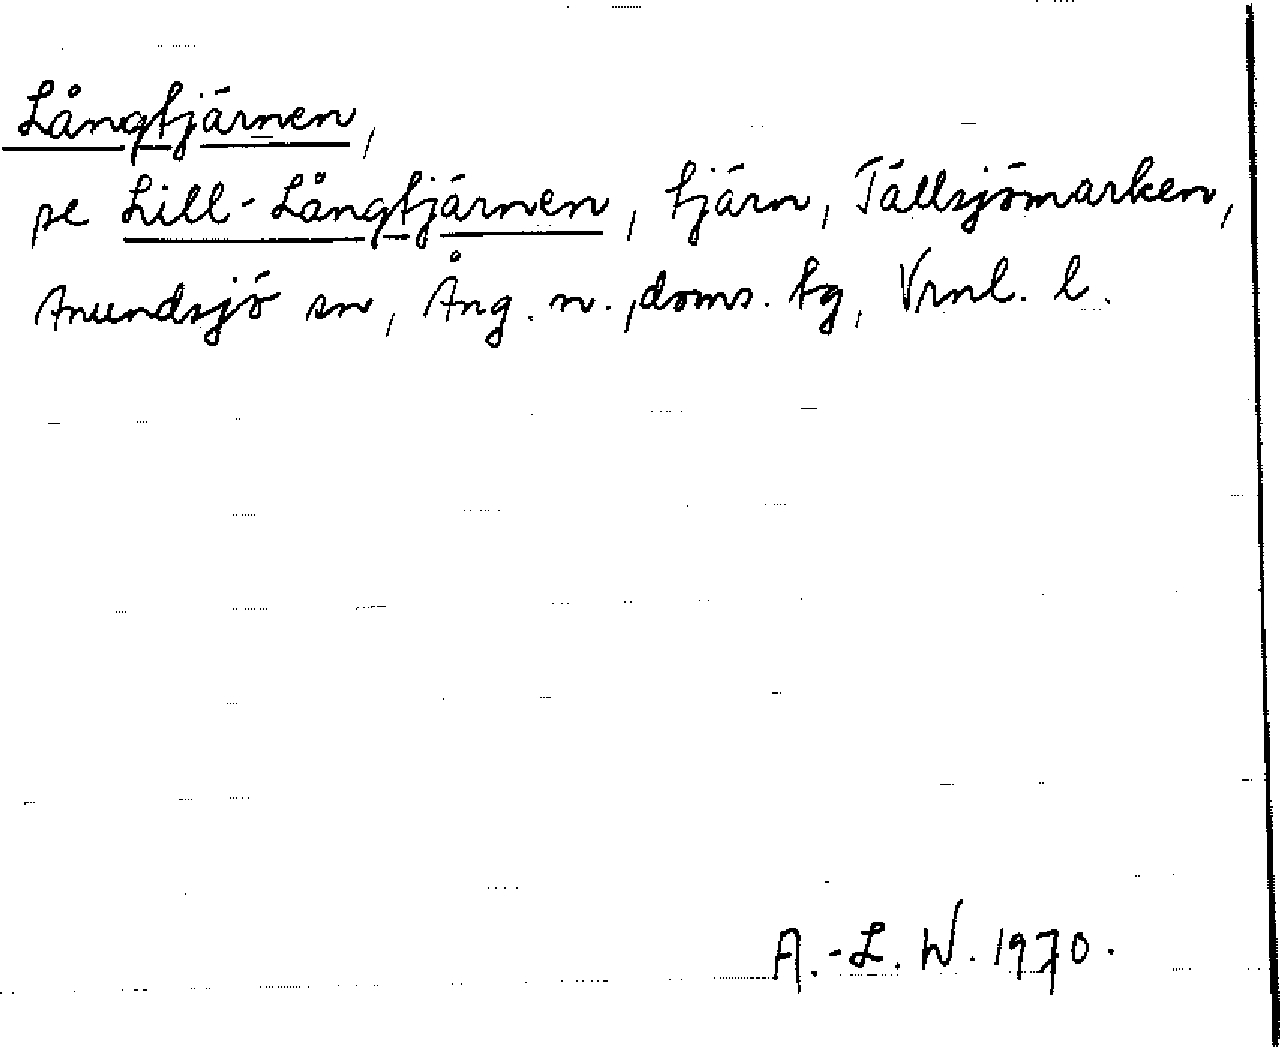 Långtjärnen,
se Lill-Långtjärnen, tjärn, Tällsjömarken,
Anundsjö sn, Ång. n. doms. tg, Vrnl. l.
A.-L. W. 1970.